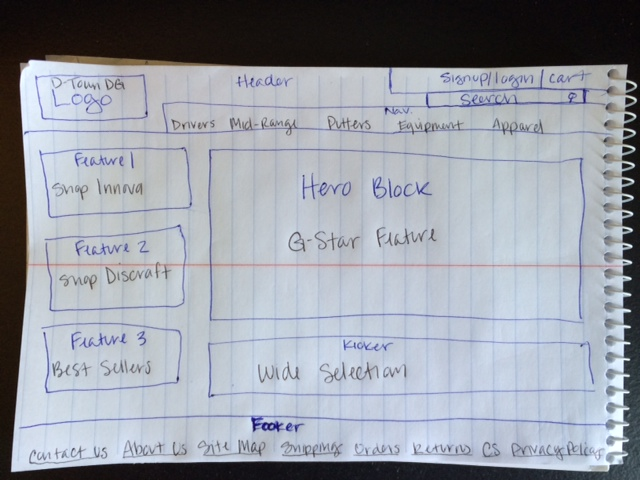 D-Town DG
Logo
Header
Signup/login | cart
Search
Nav.
Drivers Mid-Range Putters Equipment Apparel
Feature 1
Shop Innova
Hero Block
G-Star Feature
Feature 2
Shop Discraft
Feature 3
Best Sellers
Kicker
Wide Selection
Footer
Contact Us About Us Site Map Shipping Orders Returns CS Privacy Policy